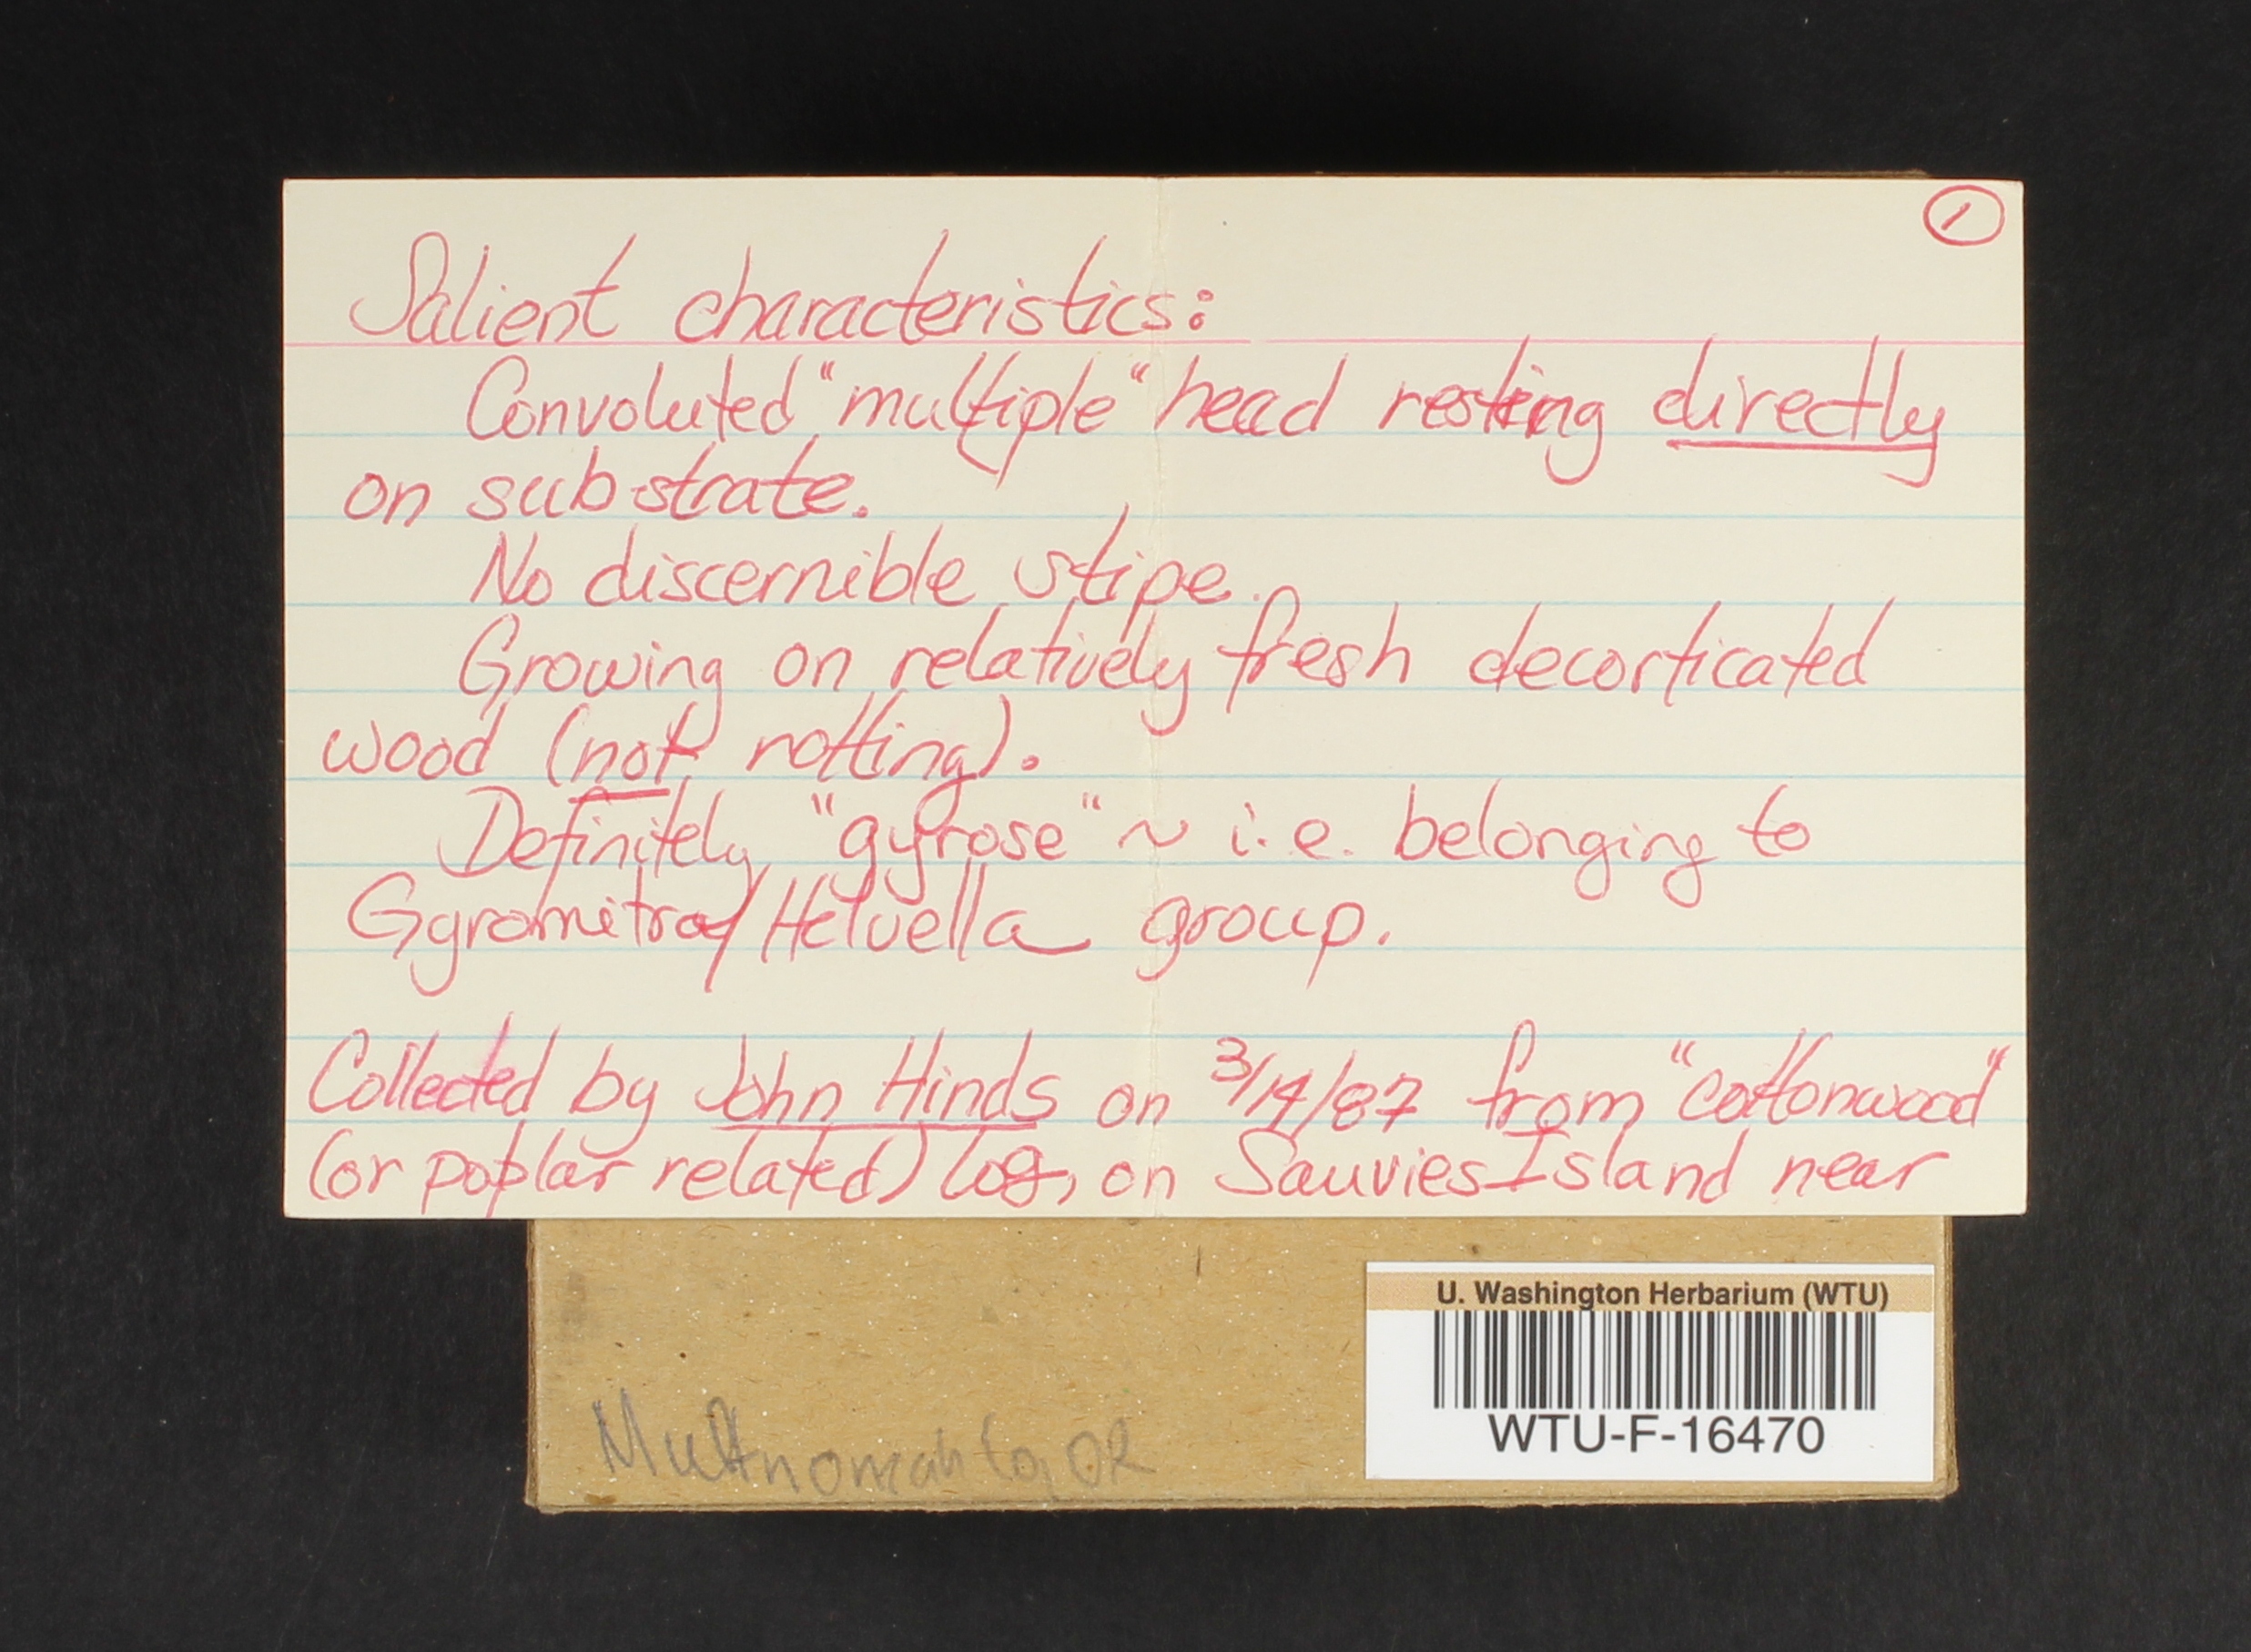 1
Salient characteristics:
Convoluted "multiple" head resting directly
on substrate.
No discernible stipe.
Growing on relatively fresh decorticated
wood (not rotting).
Definitely "gyrose" ~ i.e. belonging to
Gyromitra/Helvella group.
Collected by John Hinds on 3/14/87 from "cottonwood"
(or poplar related) log, on Sauvies Island near
U. Washington Herbarium (WTU)
WTU-F-16470
Multnomah Co, OR